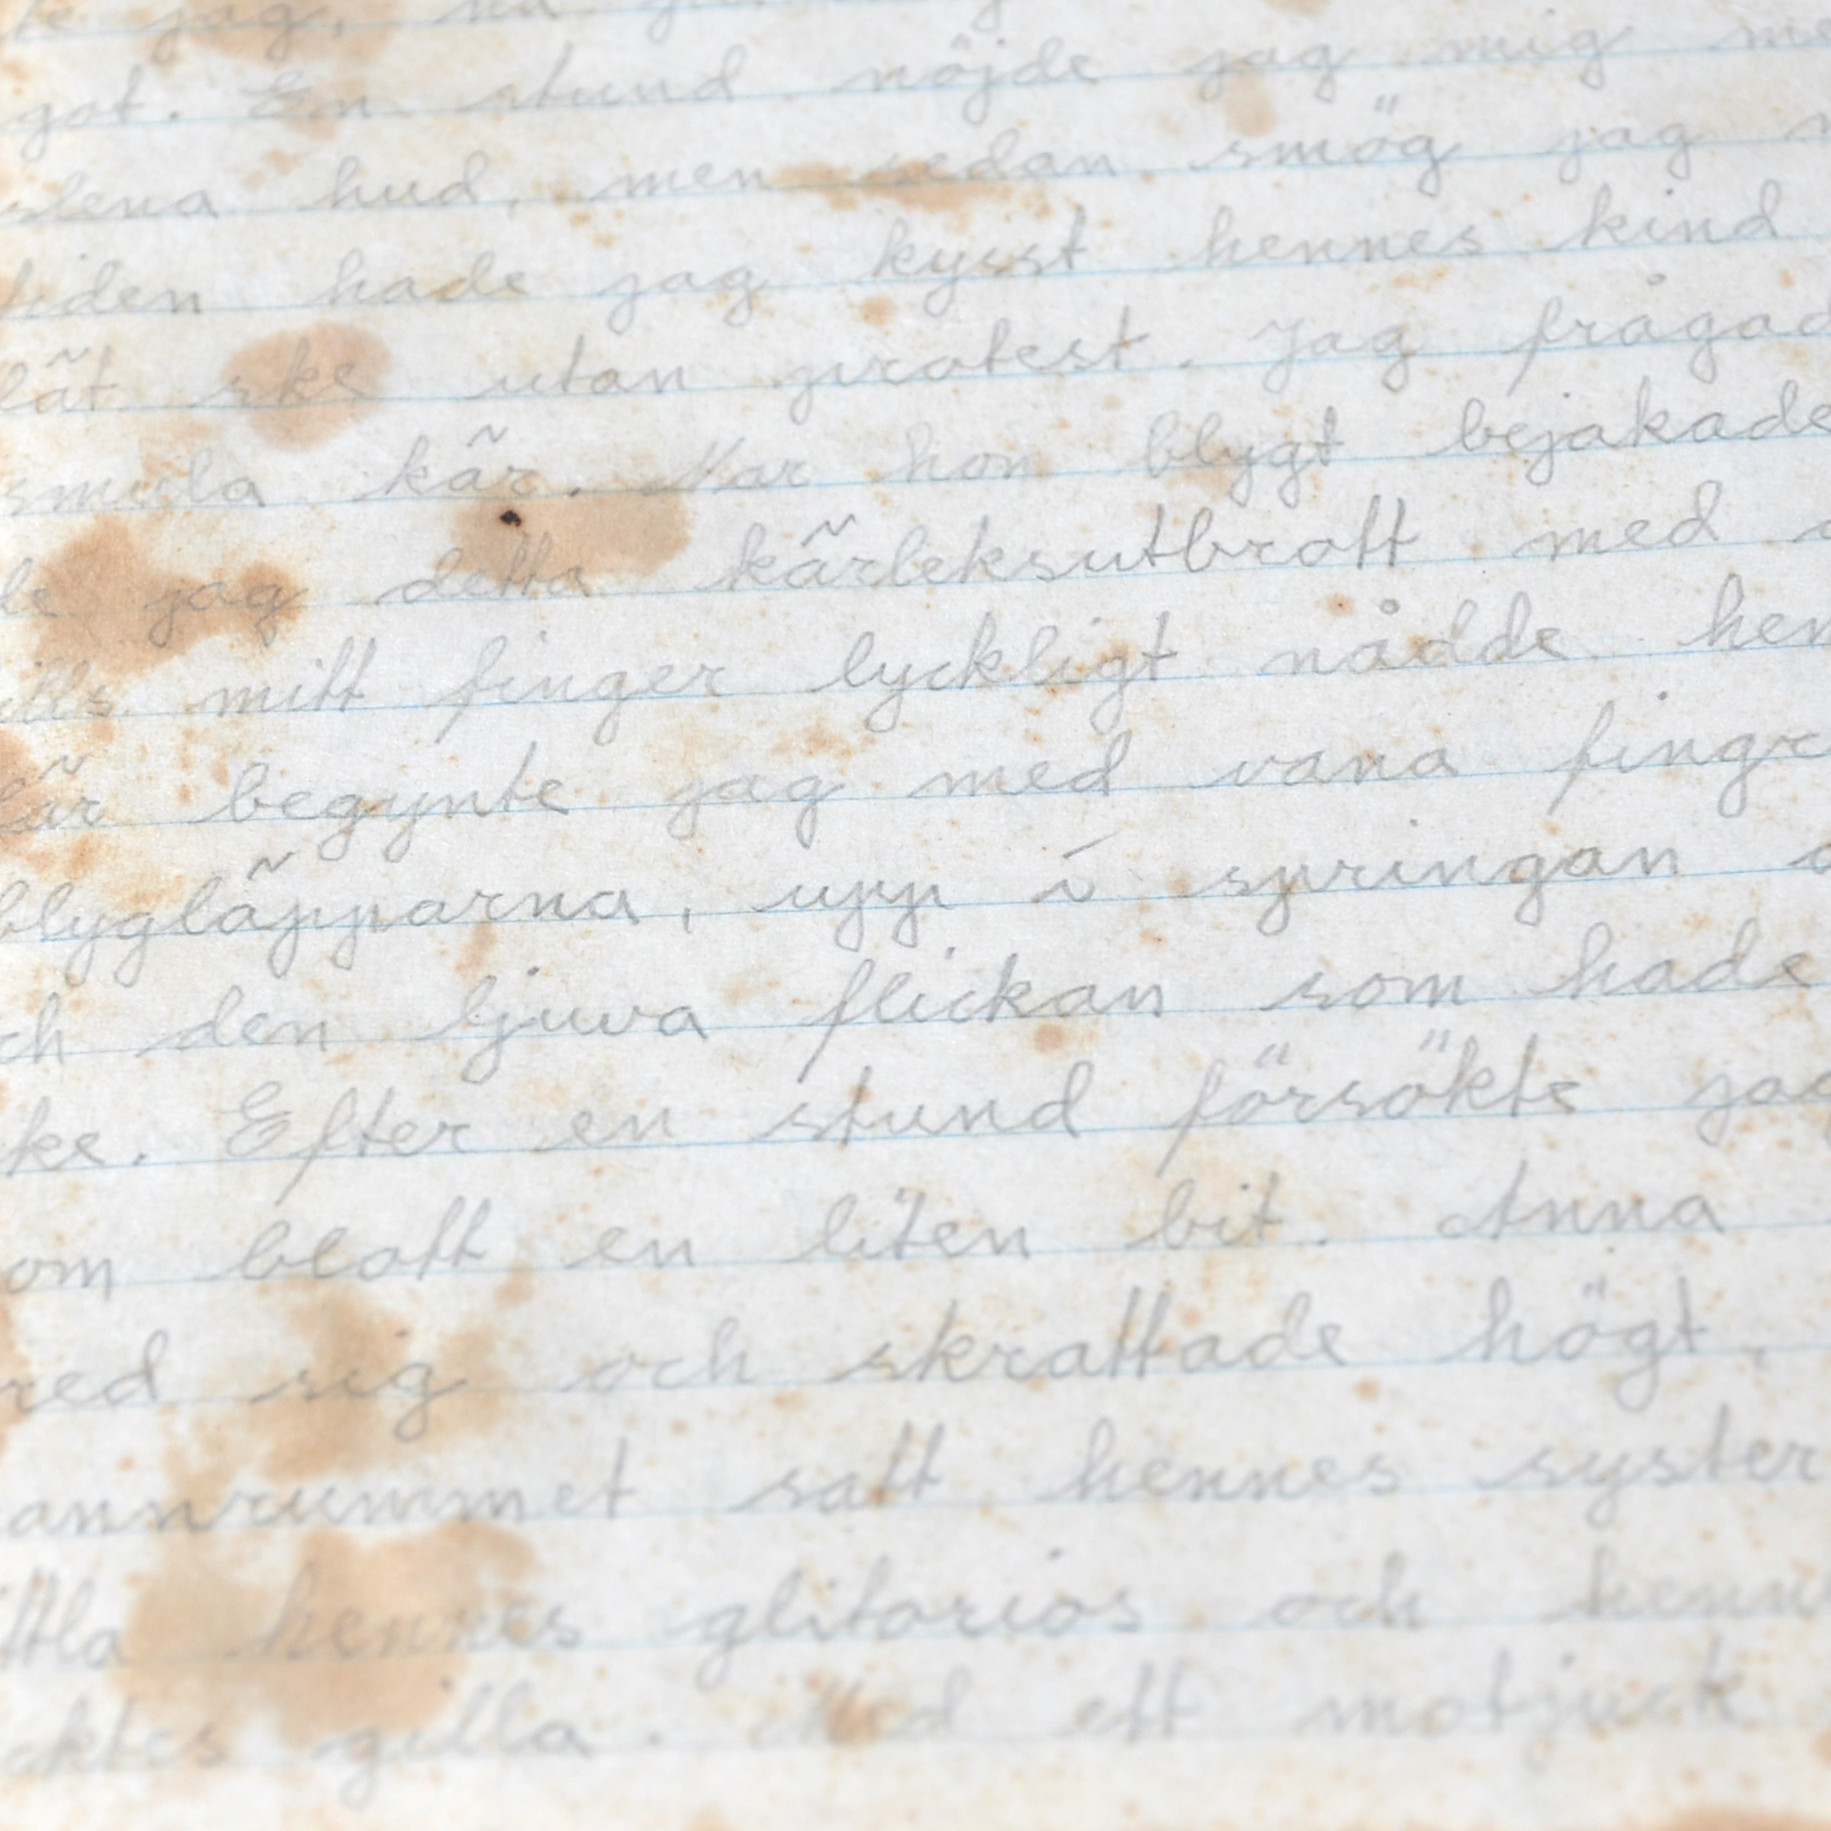 jag,
got. En stund nöjde jag mig me
slena hud, men sedan smög jag
tiden hade jag kysst hennes kind
lät ske utan protest. Jag frågad
smula kär. När hon blygt bejakade
de jag detta kärleksutbrott med
ills mitt finger lyckligt nådde hen
där begynte jag med vana fingr
blygläpparna, upp i springan
ch den ljuva flickan som hade
ke. Efter en stund försökte jag
om blott en liten bit. Anna
red sig och skrattade högt.
annrummet satt hennes syster
ttla hennes glitorios och henn
aktes gilla. Med ett motjuck